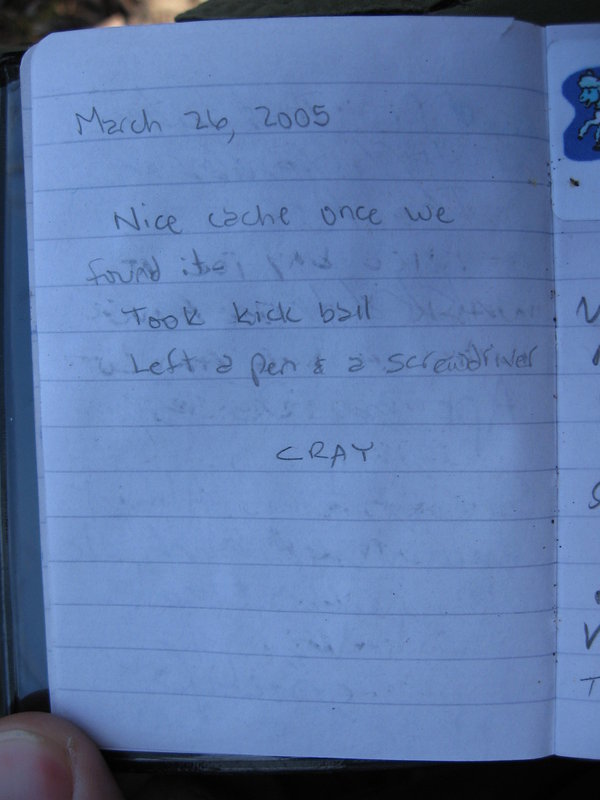 March 26, 2005
Nice cache once we
found it.
Took kick ball
Left a pen & a screwdriver
CRAY